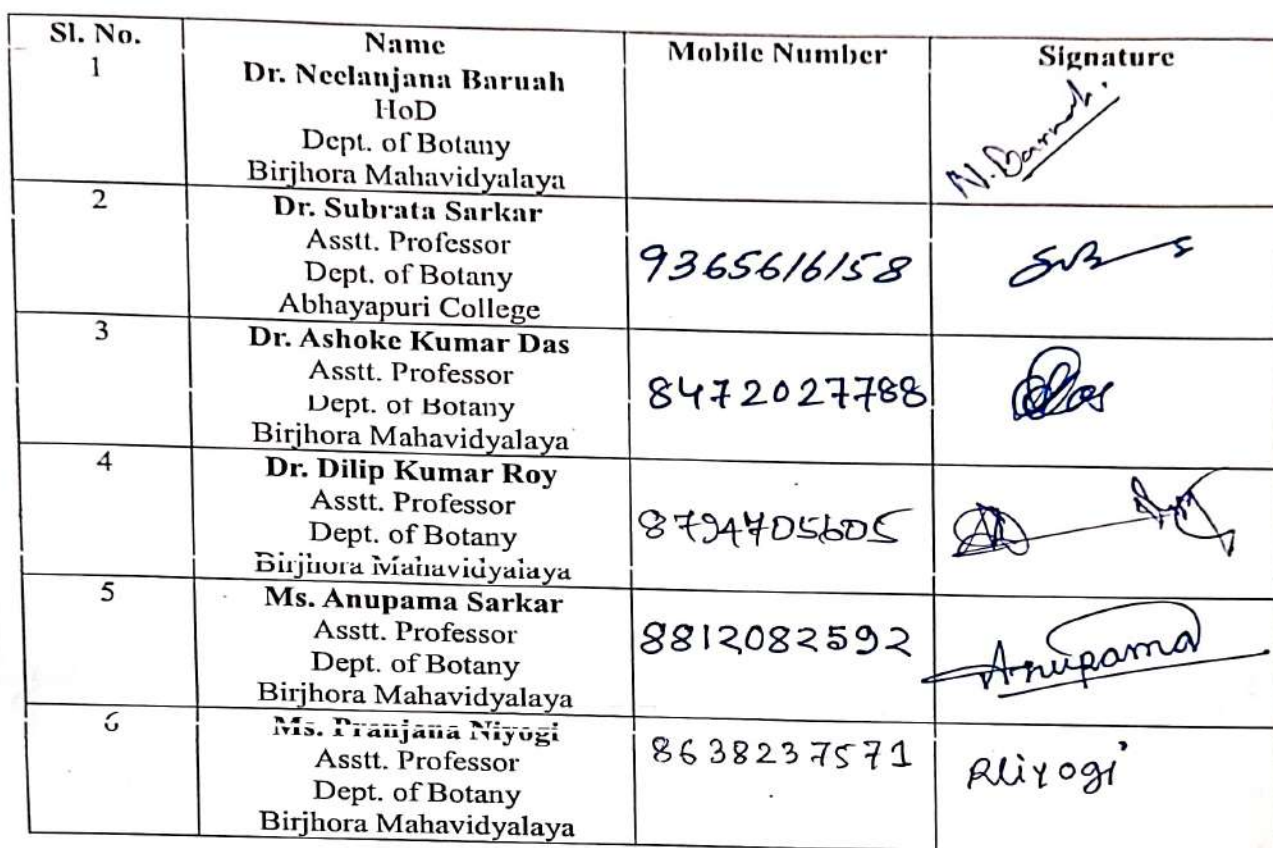 Sl. No. Name Mobile Number Signature
1 Dr. Neelanjana Baruah
HoD
Dept. of Botany
Birjhora Mahavidyalaya
N. Baruah.
2 Dr. Subrata Sarkar
Asstt. Professor
Dept. of Botany
Abhayapuri College
9365616158
3 Dr. Ashoke Kumar Das
Asstt. Professor
Dept. of Botany
Birjhora Mahavidyalaya
8472027788
4 Dr. Dilip Kumar Roy
Asstt. Professor
Dept. of Botany
Birjhora Mahavidyalaya
8794705605
5 Ms. Anupama Sarkar
Asstt. Professor
Dept. of Botany
Birjhora Mahavidyalaya
8812082592 Anupama
6 Ms. Pranjana Niyogi
Asstt. Professor
Dept. of Botany
Birjhora Mahavidyalaya
8638237571 PNiyogi